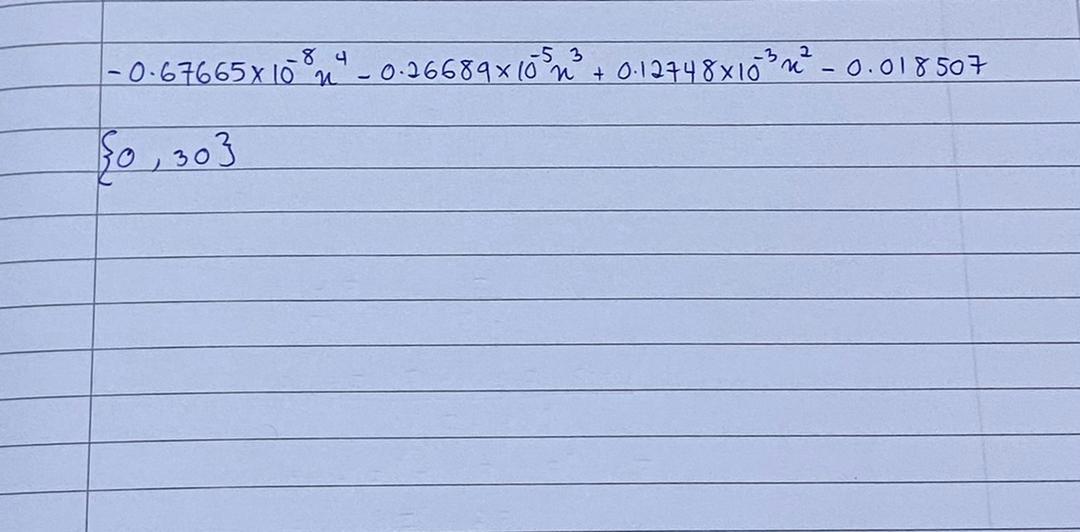 -0.67665×10⁻⁸x⁴ - 0.26689×10⁻⁵x³ + 0.12748×10⁻³x² - 0.018507
{0, 30}